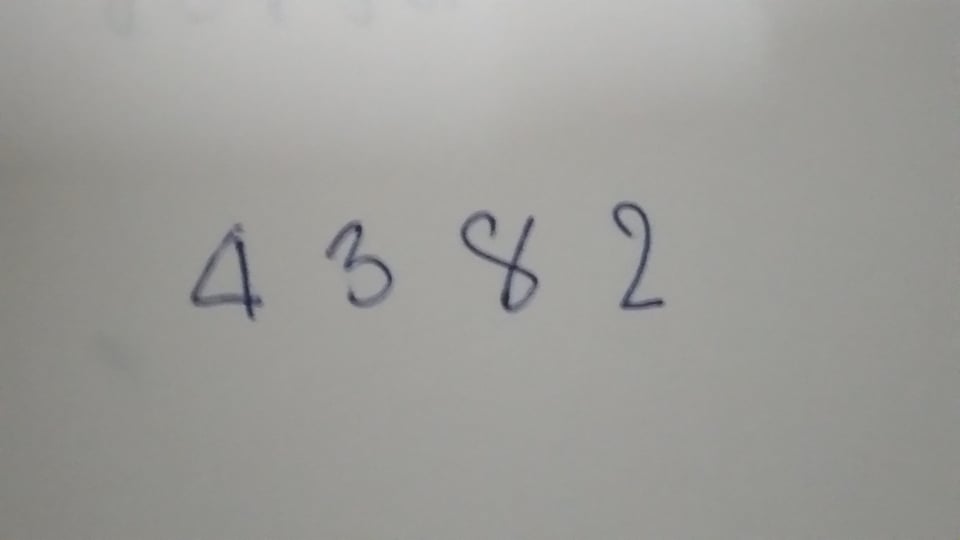 4 3 8 2